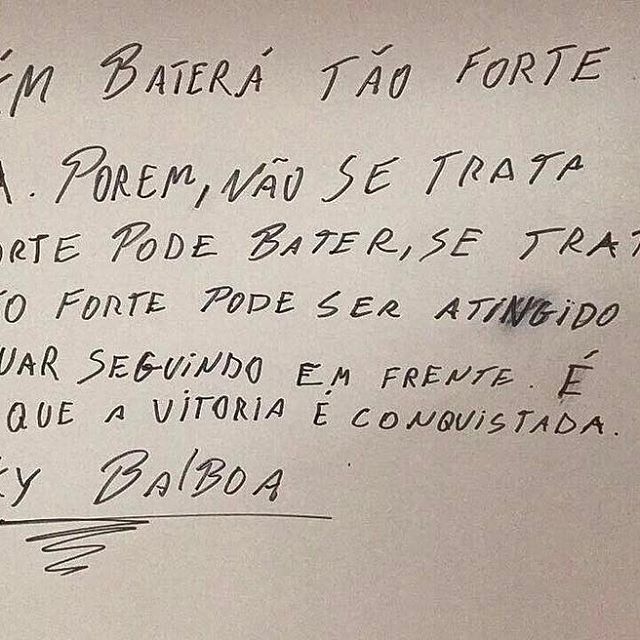 ÉM BATERÁ TÃO FORTE
A. POREM, NÃO SE TRATA
ORTE PODE BATER, SE TRAT
TO FORTE PODE SER ATINGIDO
UAR SEGUINDO EM FRENTE. É
QUE A VITORIA É CONQUISTADA.
KY BALBOA